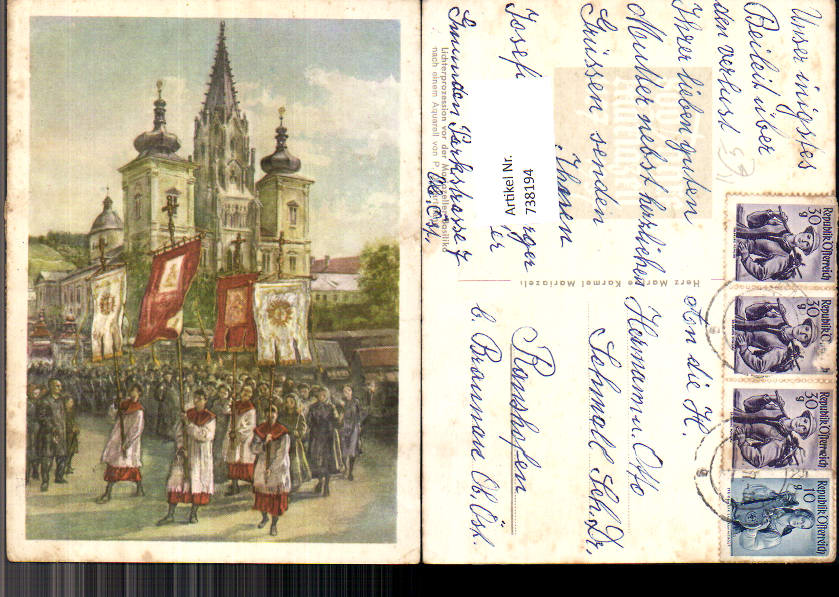 Unser inigstes
Beileid über
den verlust
Ihrer lieben guten
Mutter nebst herzlichen
Grüssen senden
Ihnen
Josef
Gmunden Parkstrasse 7
Ob. Öst.
An die H.
Hermann u. Otto
Schmoll Sch.Dr.
Ranshofen
b. Braunau Ob. Öst
Artikel Nr.
738194
Lichterprozession vor der Mariazeller Basilika
nach einem Aquarell von P.
Karmel Mariazell
Republik Österreich
30 g
Republik Österreich
30 g
Republik Österreich
30 g
Republik Österreich
10 g